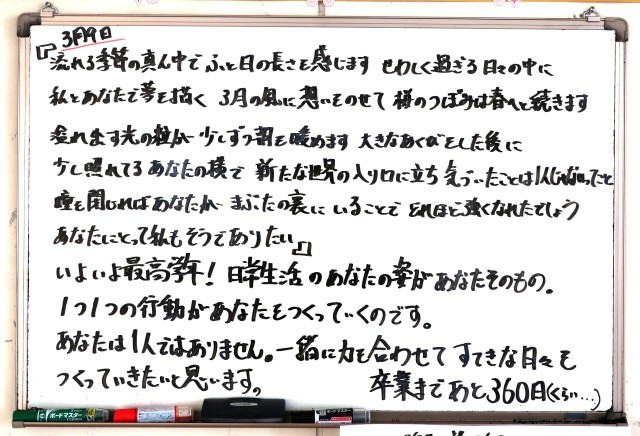 3月9日
『流れる季節の真ん中で ふと日の長さを感じます せわしく過ぎる日々の中に
私とあなたで夢を描く 3月の風に想いをのせて 桜のつぼみは春へと続きます
溢れ出す光の粒が 少しずつ朝を暖めます 大きなあくびをした後に
少し照れてるあなたの横で 新たな世界の入り口に立ち 気づいたことは1人じゃないってこと
瞳を閉じればあなたが まぶたの裏に いることで どれほど強くなれたでしょう
あなたにとって私もそうでありたい』
いよいよ最高学年! 日常生活のあなたの姿があなたそのもの。
1つ1つの行動があなたをつくっていくのです。
あなたは1人ではありません。一緒に力を合わせて すてきな日々も
つくっていきたいと思います。
卒業まであと360日(くらい…)
ボードマスター
ボードマスター